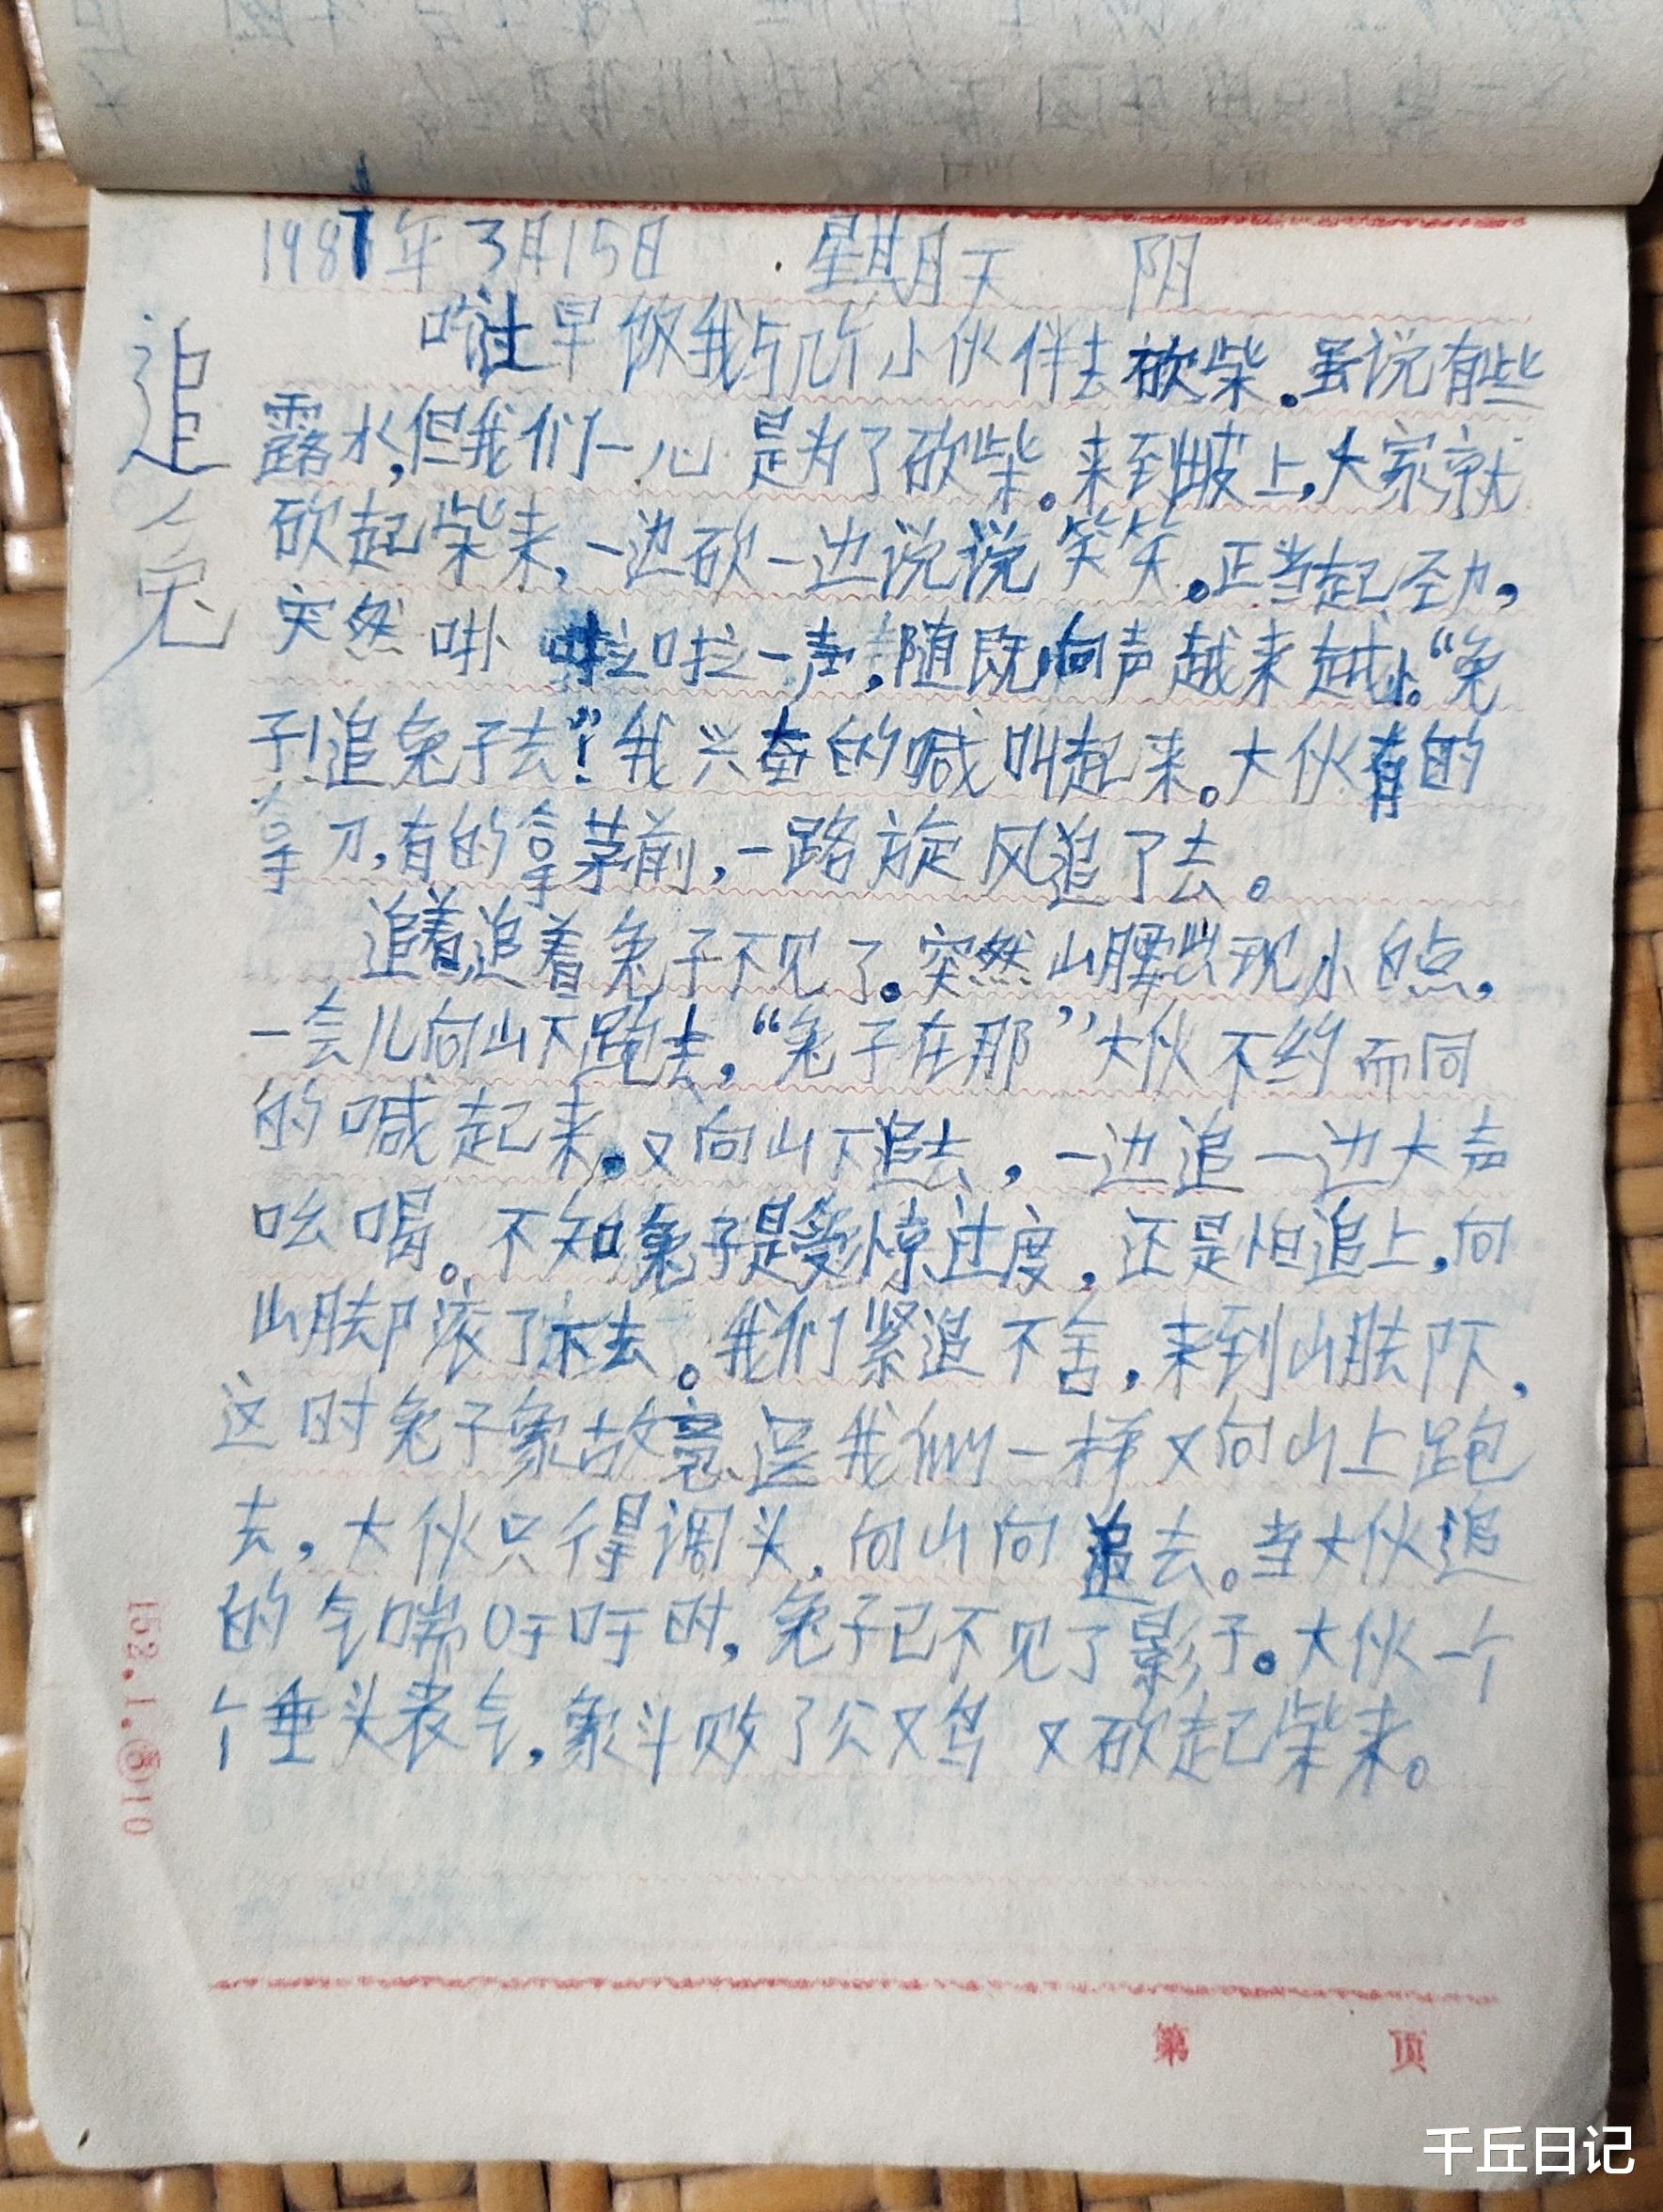 1987年3月15日 星期天 阴
追兔
吃过早饭我与几个小伙伴去砍柴。虽说有些
露水,但我们一心是为了砍柴。来到坡上,大家就
砍起柴来,一边砍一边说说笑笑。正当起劲,
突然卟啦啦一声,随既向声越来越小。“兔
子!追兔子去”!我兴奋的喊叫起来。大伙有的
拿刀,有的拿茅前,一路旋风追了去。
追着追着兔子不见了。突然山腰出现小白点,
一会儿向山下跑去,“兔子在那”大伙不约而同
的喊起来。又向山下追去,一边追一边大声
吆喝。不知兔子是受惊过度,还是怕追上,向
山脚滚了下去。我们紧追不舍,来到山脚下,
这时兔子象故意逗我们一样又向山上跑
去,大伙只得调头,向山向追去。当大伙追
的气喘吁吁时,兔子已不见了影子。大伙一个
个垂头丧气,象斗败了公又鸟又砍起柴来。
152.1.⑧10
第 页
千丘日记